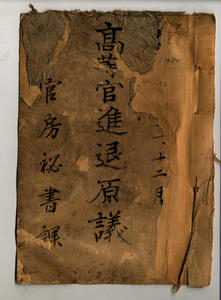 十二月
高等官進退原議
官房秘書課